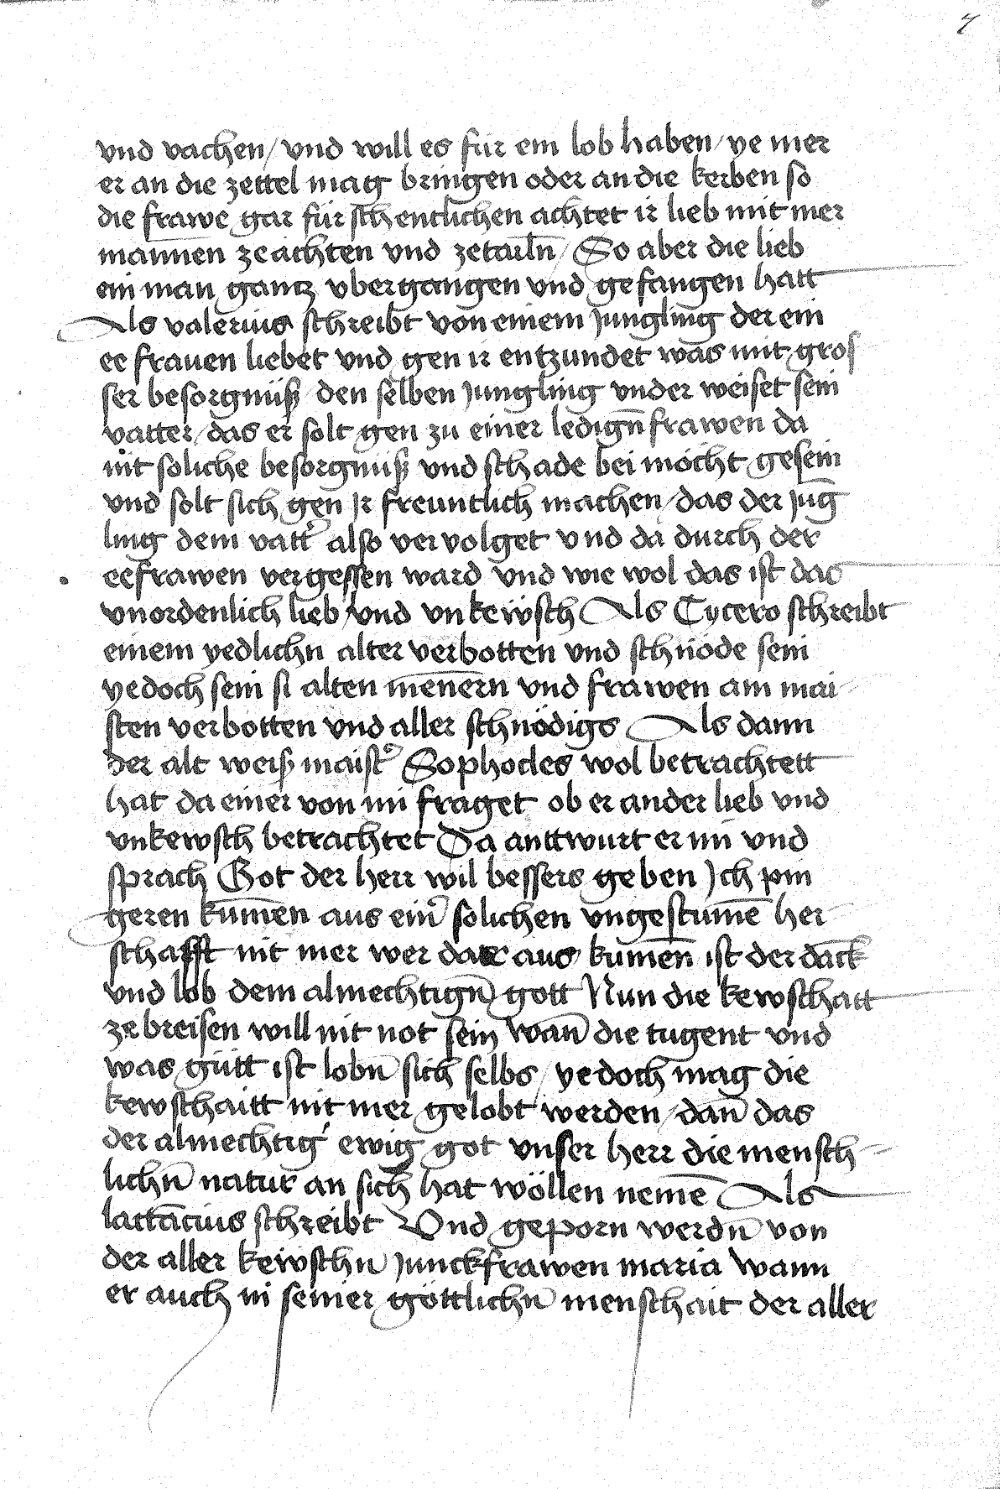 7
vnd vachen / vnd will es für ein lob haben / ye mer
er an die zettel mag bringen oder an die kerben so
die frawe gar für schentlichen achtet ir lieb mit mer
mannen ze achten vnd zetailn̄ / So aber die lieb
ein man gantz vbergangen vnd gefangen hatt
Als valerius schreibt von einem Jungling der ein
ee frauen liebet vnd gen ir entzundet was mit gros
ser besorgnüß / den selben Jungling vnder weiset sein
vatter / das er solt gen zu einer ledign̄ frawen da
nit soliche besorgnüß vnd schade bei möcht gesein
vnd solt sich gen Ir freuntlich machen / das der Jūg
ling dem vatt' also vervolget vnd da durch der
eefrawen vergessen ward vnd wie wol das ist das
vnordenlich lieb / vnd vnkeẅsch Als Tycero schreibt
einem yedlichn alter verbotten vnd schnöde sein
yedoch sein si alten mēnern vnd frawen am mai
sten verbotten vnd aller schnödigs Als dann
der alt weiß maist' Sophocles wol betrachtett
hat da einer von im fraget ob er ander lieb vnd
vnkewsch betrachtet Da anttwurt er im vnd
sprach Got der herr wil bessers geben Ich pin
geren kūmen aus ein' solichen vngestumē her
schafft nit mer wer dar aus kumēn ist der danck
vnd lob dem almechtign̄ gott Nun die kewschatt
ze breisen will nit not sein wan̄ die tugent vnd
was gütt ist lobn̄ sich selbs / yedoch mag die
kewschaitt nit mer gelobt werden / dan̄ das
der almechtig ewig got vnser herr die mensch
lichn̄ natur an sich hat wöllen nemē Als
lactāncius schreibt Vnd geporn werdn̄ von
der aller keẅschn̄ Junckfrawen maria Wann
er auch in seiner göttlichn̄ menschait der aller